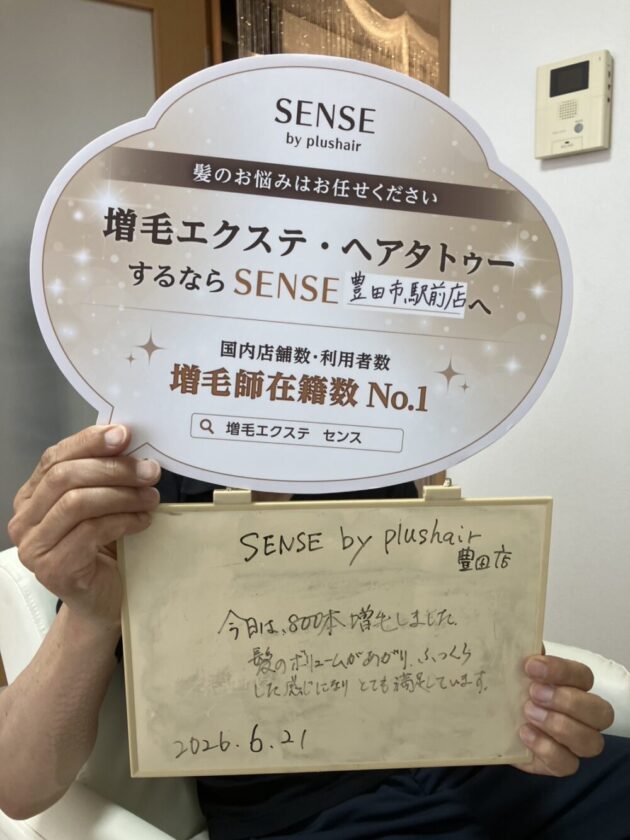 SENSE
by plushair
髪のお悩みはお任せください
増毛エクステ・ヘアタトゥー
するなら SENSE 豊田市駅前店へ
国内店舗数・利用者数
増毛師在籍数 No.1
増毛エクステ センス
SENSE by plushair
豊田店
今日は、800本増毛しました。
髪のボリュームがあがり、ふっくら
した感じになりとても満足しています。
2026.6.21